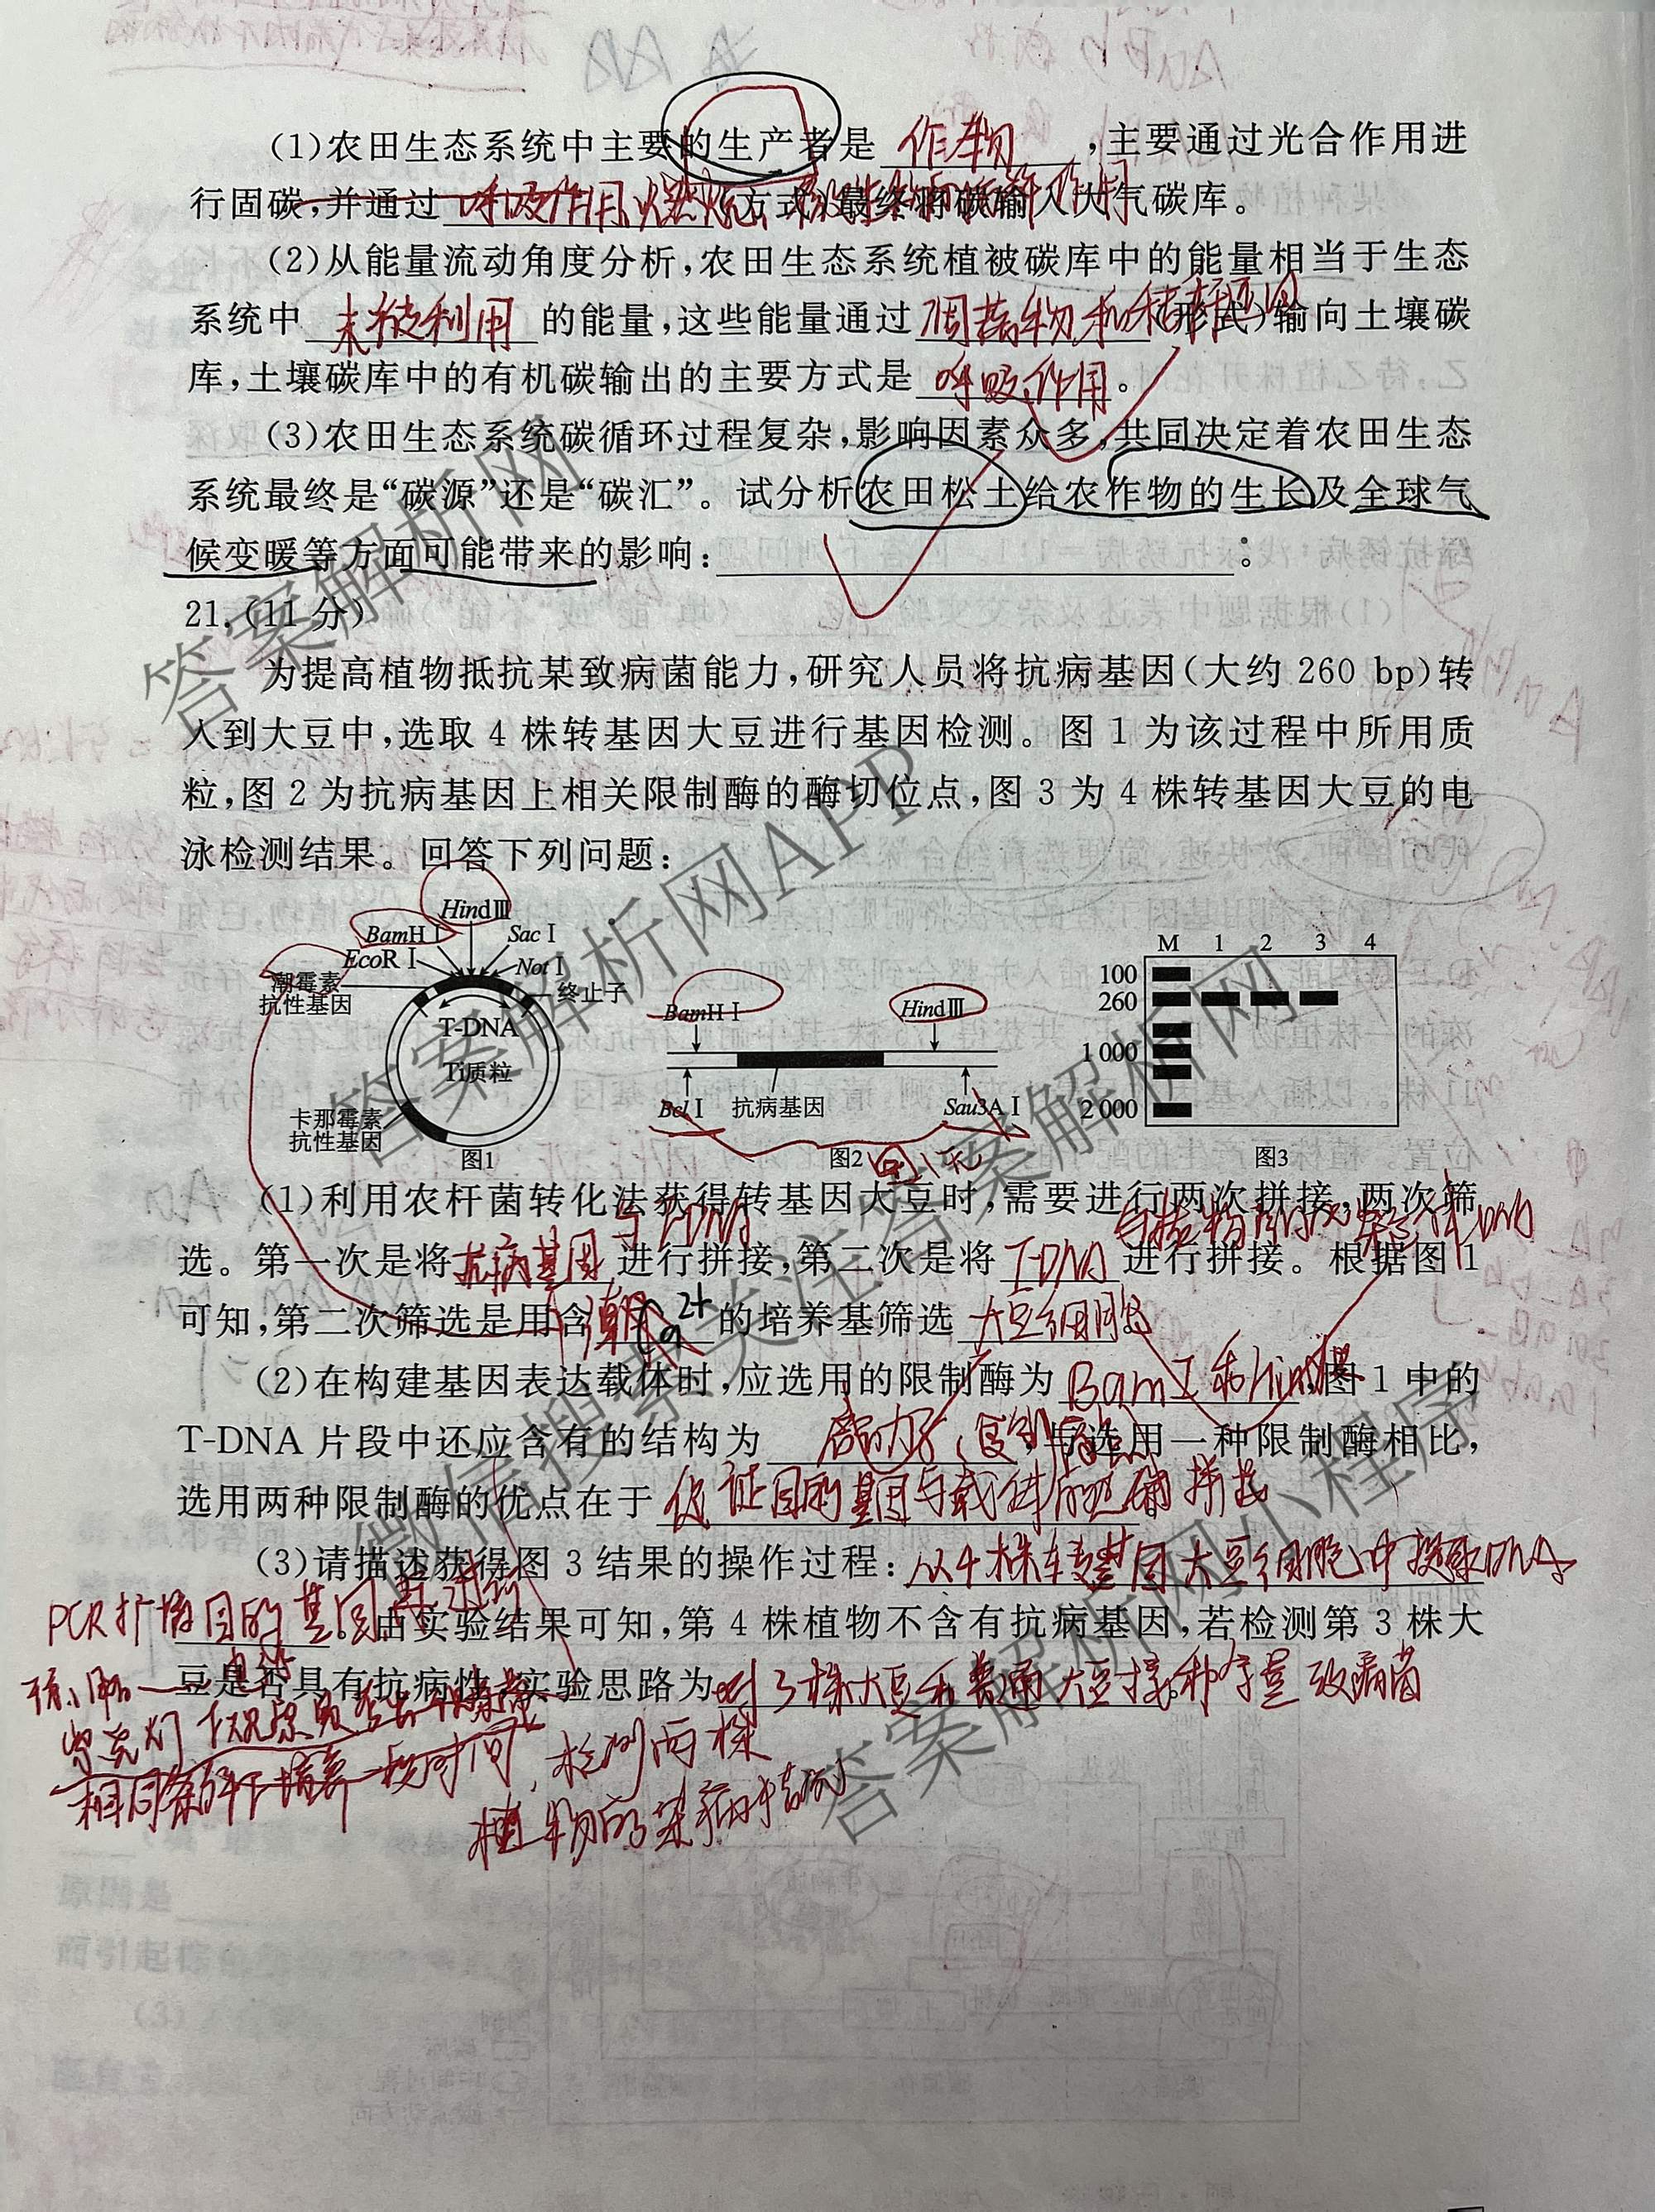 (1)农田生态系统中主要的生产者是 作物 ,主要通过光合作用进
行固碳,并通过 呼吸作用、燃烧、 (方式)最终将碳输入大气碳库。
(2)从能量流动角度分析,农田生态系统植被碳库中的能量相当于生态
系统中 未被利用 的能量,这些能量通过 凋落物和秸秆还田 (形式)输向土壤碳
库,土壤碳库中的有机碳输出的主要方式是 呼吸作用 。
(3)农田生态系统碳循环过程复杂,影响因素众多,共同决定着农田生态
系统最终是“碳源”还是“碳汇”。试分析农田松土给农作物的生长及全球气
候变暖等方面可能带来的影响:
21.(11分)
为提高植物抵抗某致病菌能力,研究人员将抗病基因(大约 260 bp)转
入到大豆中,选取 4 株转基因大豆进行基因检测。图 1 为该过程中所用质
粒,图 2 为抗病基因上相关限制酶的酶切位点,图 3 为 4 株转基因大豆的电
泳检测结果。回答下列问题:
HindⅢ
BamHⅠ
SacⅠ
EcoRⅠ
NotⅠ
潮霉素
抗性基因
终止子
T-DNA
Ti质粒
卡那霉素
抗性基因
图1
BamHⅠ
HindⅢ
BclⅠ
抗病基因
Sau3AⅠ
图2
M 1 2 3 4
100
260
1 000
2 000
图3
与T-DNA
与植物细胞染色体DNA
(1)利用农杆菌转化法获得转基因大豆时,需要进行两次拼接,两次筛
选。第一次是将 抗病基因 进行拼接,第二次是将 T-DNA 进行拼接。根据图 1
可知,第二次筛选是用含 Ca2+ 的培养基筛选 大豆细胞
(2)在构建基因表达载体时,应选用的限制酶为 BamⅠ和Hind ,图 1 中的
T-DNA 片段中还应含有的结构为 启动子、复制原点 ,与选用一种限制酶相比,
选用两种限制酶的优点在于 保证目的基因与载体的正确拼接
(3)请描述获得图 3 结果的操作过程: 从4株转基因大豆细胞中提取DNA,
PCR扩增目的基因再进行
电泳
。由实验结果可知,第 4 株植物不含有抗病基因,若检测第 3 株大
豆是否具有抗病性,实验思路为 对3株大豆和普通大豆接种等量致病菌
相同条件下培养一段时间,检测两株
植物的患病情况
答案解析网
答案解析网APP
微信搜索关注答案解析网
答案解析网小程序